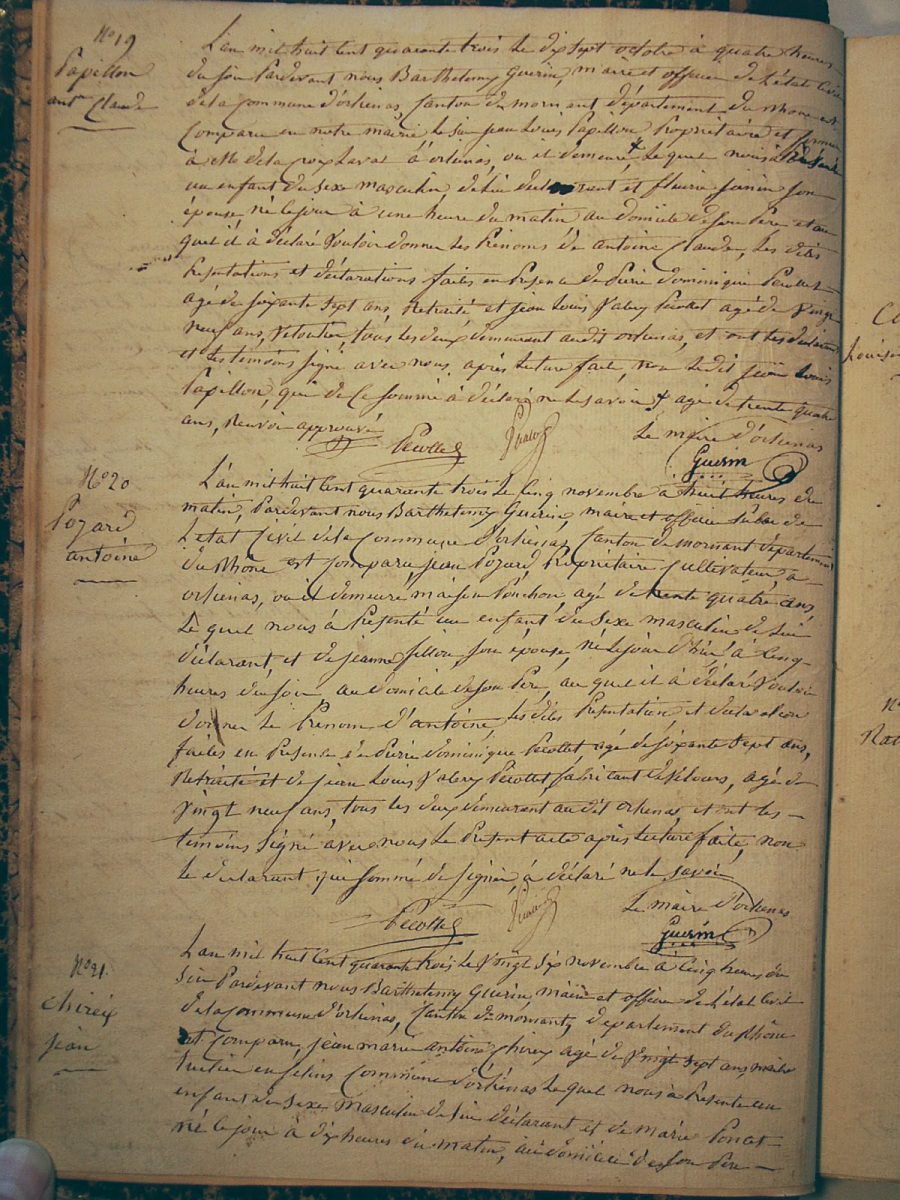 No 19
Papillon
ant. Claude
L'an mil huit cent quarante trois le dix sept octobre à quatre heures
du soir Pardevant nous Barthelemy Guerin, maire et officier de L'état Civil
de la Commune d'orliénas, Canton de mornant département du Rhône est
Comparu en notre mairie le sieur jean Louis Papillon Propriétaire et fermier
à de la croix Laval à orliénas, ou il demeure, Lequel nous à Présenté
un enfant du Sexe masculin de lui declarant et fleurie janin Son
épouse, né le jour à une heure du matin au domicile de Son Père et au
quel il à déclaré Vouloir donner Les Prénoms de antoine Claude, Les dites
Présentations et déclarations faites en Présence de Pierre dominique Pécollet
agé de Soixante Sept ans, Retraité et jean Louis Valery Pécollet agé de Vingt
neuf ans, Veloutier, tous les deux demeurant audit orliénas, et ont les déclarant
et Les temoins Signé avec nous, après Lecture faite, non Le dit jean Louis
Papillon, qui de Ce Sommé à déclaré ne le Savoir + agé de trente quatre
ans, Renvoi approuvé
Pécollet
Le maire d'orliénas
Guerin
No 20
Pozard
antoine
L'an mil huit cent quarante trois le Cinq novembre à huit heures du
matin, Pardevant nous Barthelemy Guerin, maire et officier Public de
L'état Civil de la Commune d'orliénas, Canton de Mornant département
du Rhône est Comparu jean Pozard Propriétaire Cultivateur à
orliénas, où il demeure maison Ponchon agé de trente quatre ans
Le quel nous à Présenté un enfant du Sexe masculin de Lui
déclarant et de jeanne fillon, Son épouse, né le jour d'hier à Cinq
heures du Soir, au domicile de Son Père, au quel il à déclaré Vouloir
donner Le Prénom d'antoine, Les dites Présentation et declaration
faites en Présence de Pierre dominique Pécollet agé de Soixante Sept ans,
Retraité et de jean Louis Valery Pécollet, fabricant de Velours, agé de
Vingt neuf ans, tous les deux demeurant au dit orliénas et ont les
temoins Signé avec nous Le Présent acte après Lecture faite, non
Le declarant qui Sommé de Signer, à déclaré ne le Savoir
Pécollet
Le maire d'orliénas
Guerin
No 21
Chireix
jean
L'an mil huit Cent quarante trois Le Vingt Six novembre à Cinq heures du
Soir Pardevant nous Barthelemy Guerin, maire et officier de L'état Civil
de la Commune d'orliénas, Canton de mornant, département du Rhône
est Comparu, jean marie antoine Chireix agé de Vingt Sept ans, maître
Commune d'orliénas Lequel nous à Présenté un
enfant du Sexe masculin de Lui déclarant et de marie Poncet
né le jour à dix heures du matin, au domicile de Son Père